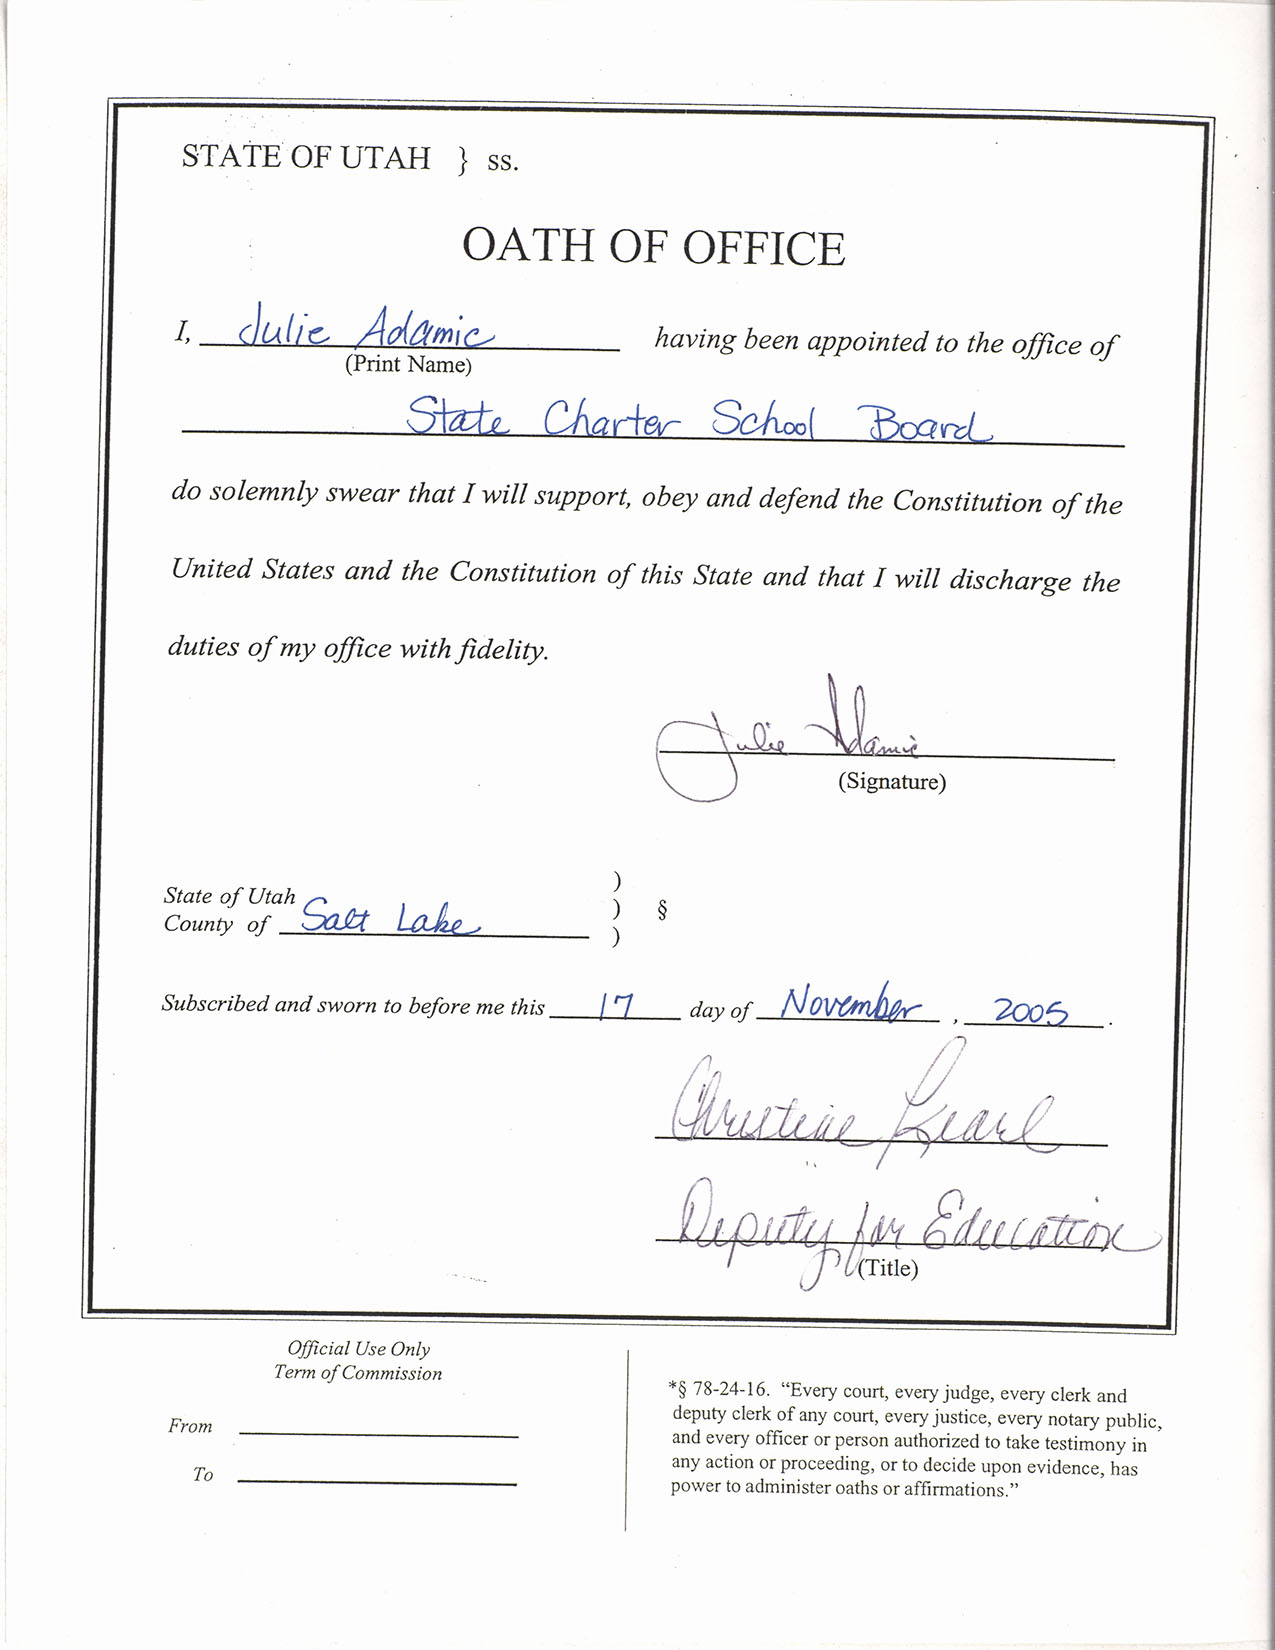 STATE OF UTAH } ss.
OATH OF OFFICE
I, Julie Adamic having been appointed to the office of
(Print Name)
State Charter School Board
do solemnly swear that I will support, obey and defend the Constitution of the
United States and the Constitution of this State and that I will discharge the
duties of my office with fidelity.
Julie Adamic
(Signature)
State of Utah )
County of Salt Lake ) §
)
Subscribed and sworn to before me this 17 day of November, 2005.
Christine Kearl
Deputy for Education
(Title)
Official Use Only
Term of Commission
From
To
*§ 78-24-16. “Every court, every judge, every clerk and
deputy clerk of any court, every justice, every notary public,
and every officer or person authorized to take testimony in
any action or proceeding, or to decide upon evidence, has
power to administer oaths or affirmations.”